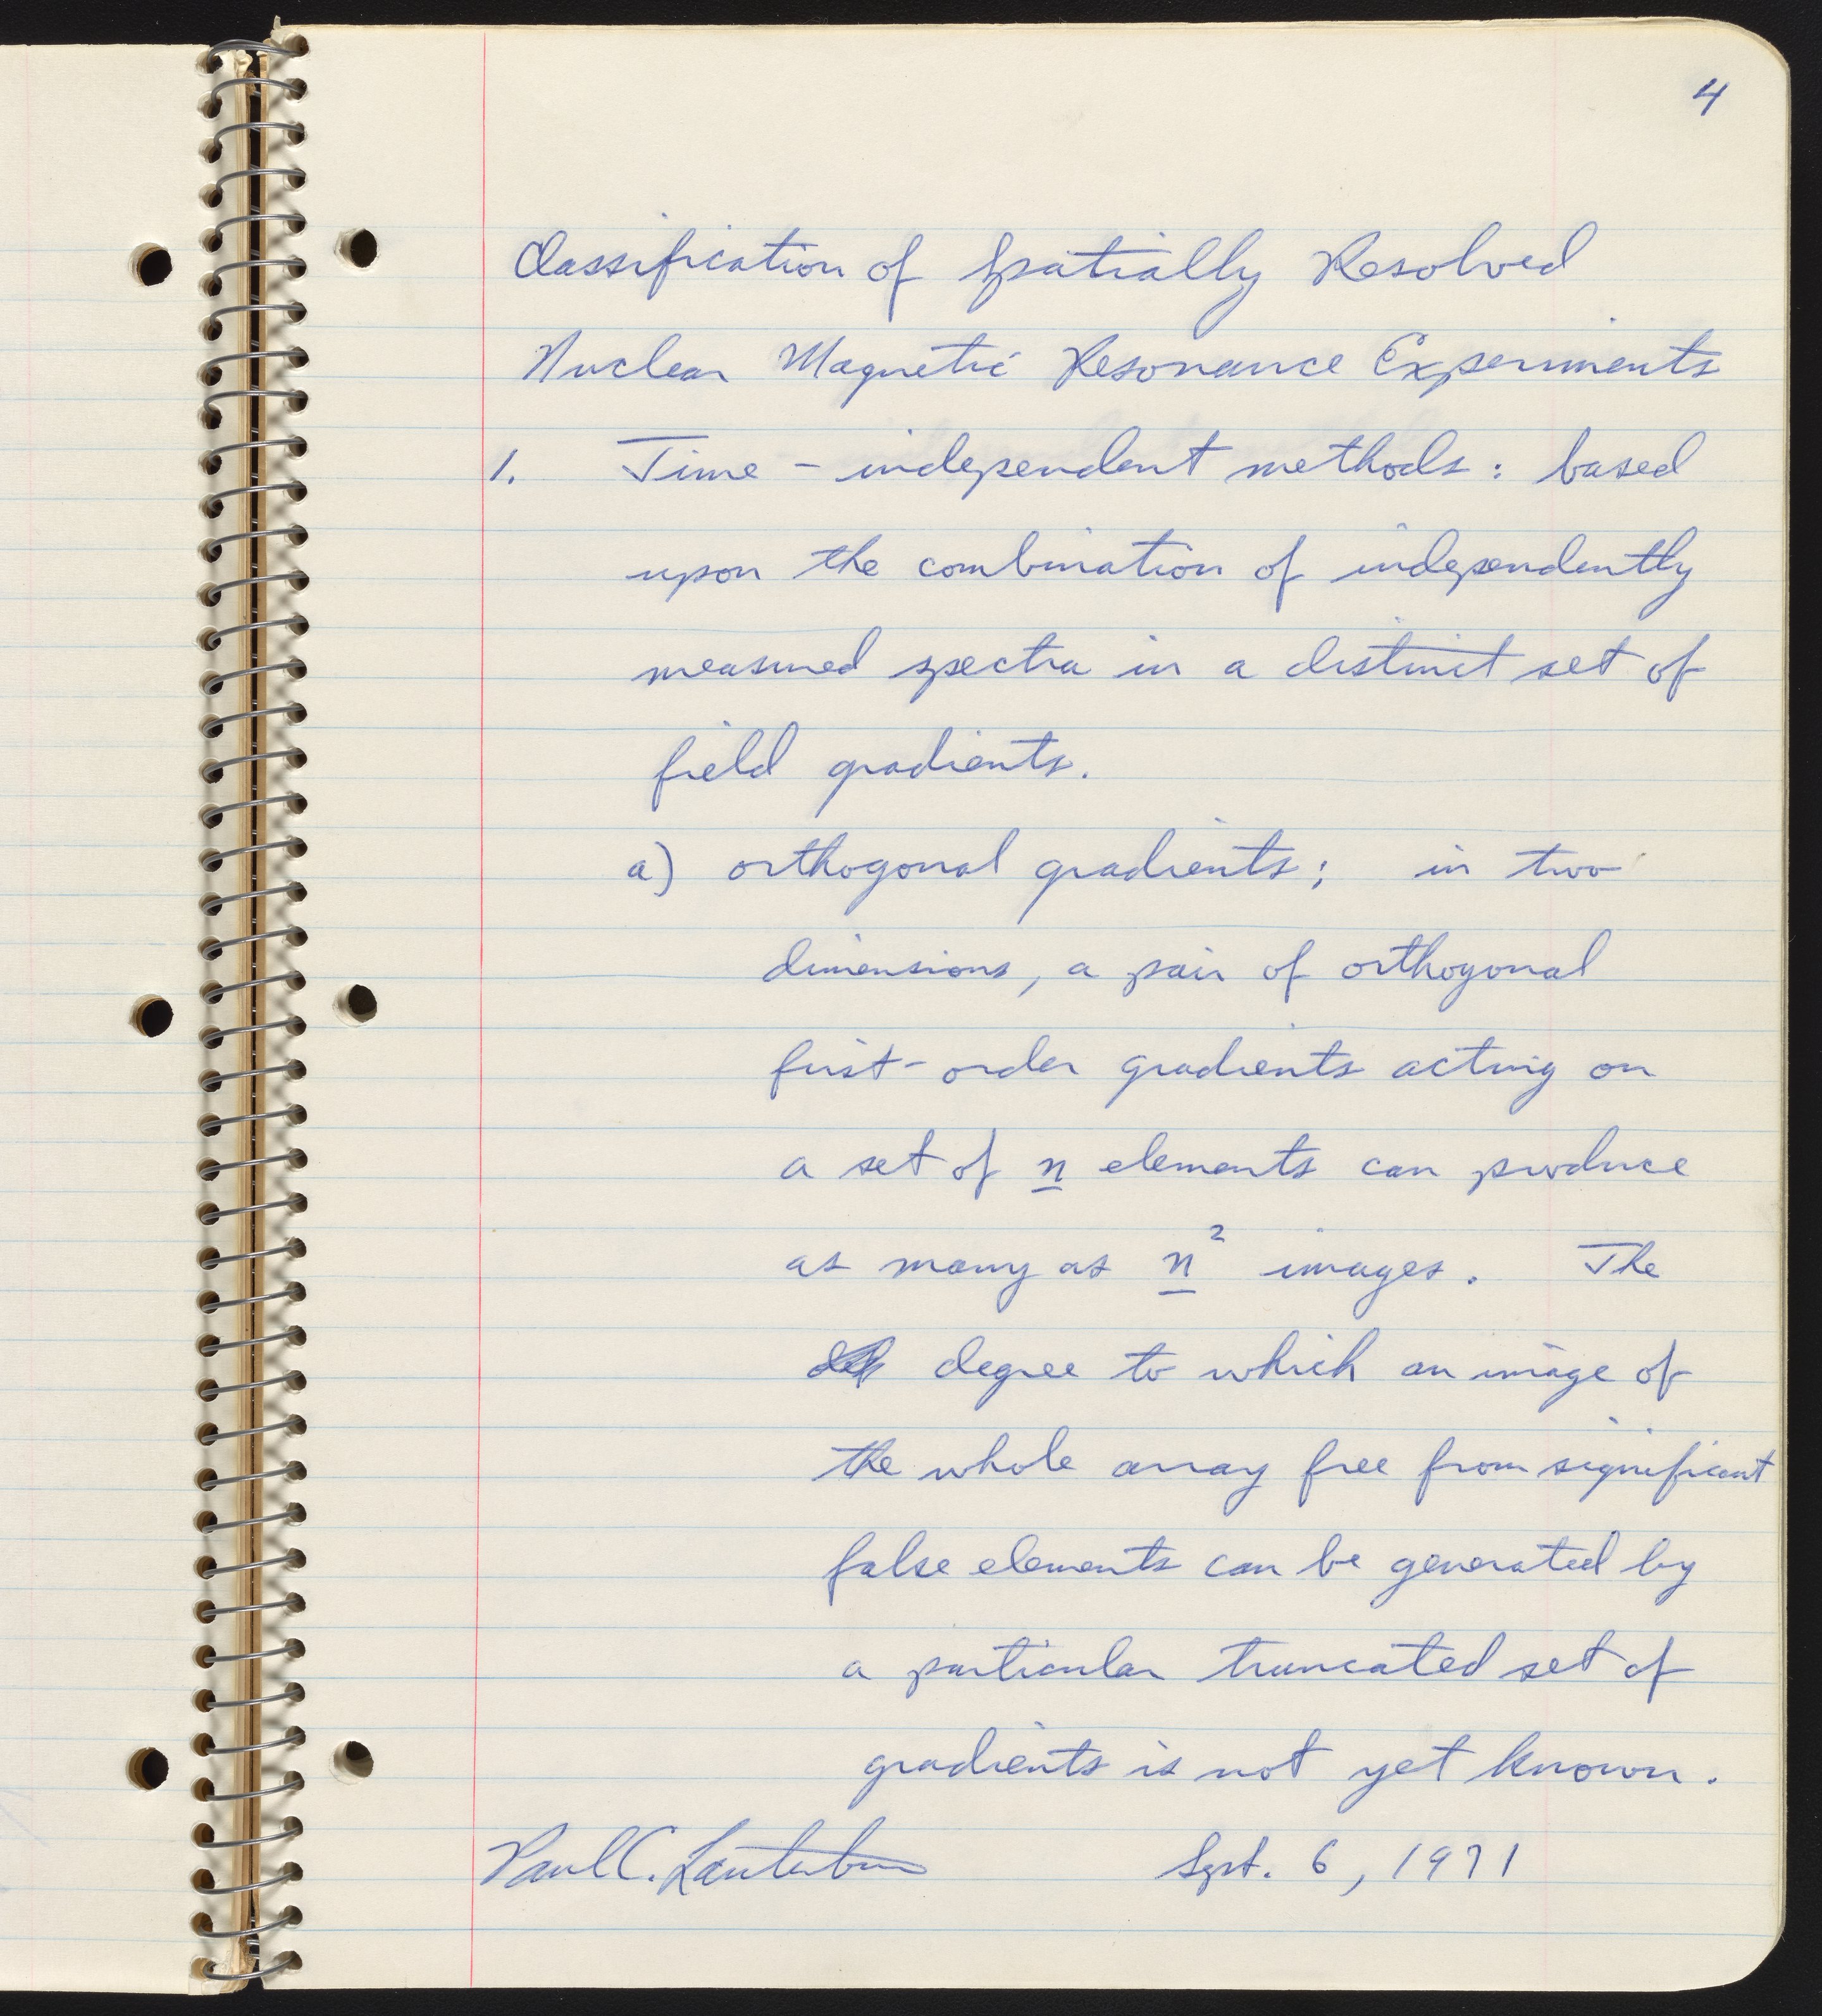 4
Classification of Spatially Resolved
Nuclear Magnetic Resonance Experiments
1. Time - independent methods: based
upon the combination of independently
measured spectra in a distinct set of
field gradients.
a) orthogonal gradients; in two
dimensions, a pair of orthogonal
first-order gradients acting on
a set of n elements can produce
as many as n² images. The
degree to which an image of
the whole array free from significant
false elements can be generated by
a particular truncated set of
gradients is not yet known.
Paul C. Lauterbur Sept. 6, 1971